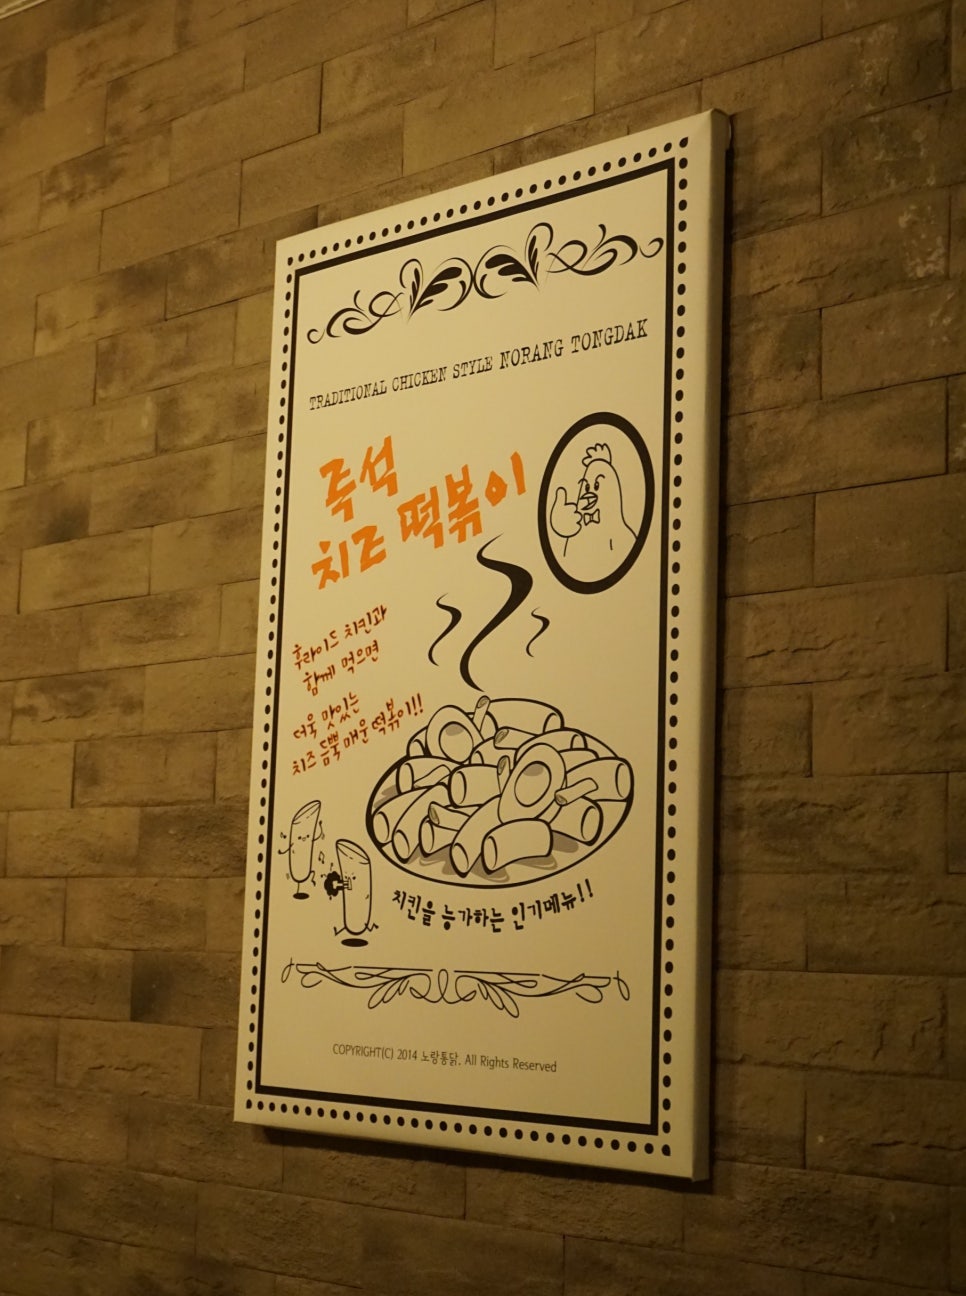 TRADITIONAL CHICKEN STYLE NORANG TONGDAK
즉석
치즈 떡볶이
후라이드 치킨과
함께 먹으면
더욱 맛있는
치즈 듬뿍 매운 떡볶이!!
치킨을 능가하는 인기메뉴!!
COPYRIGHT(C) 2014 노랑통닭. All Rights Reserved